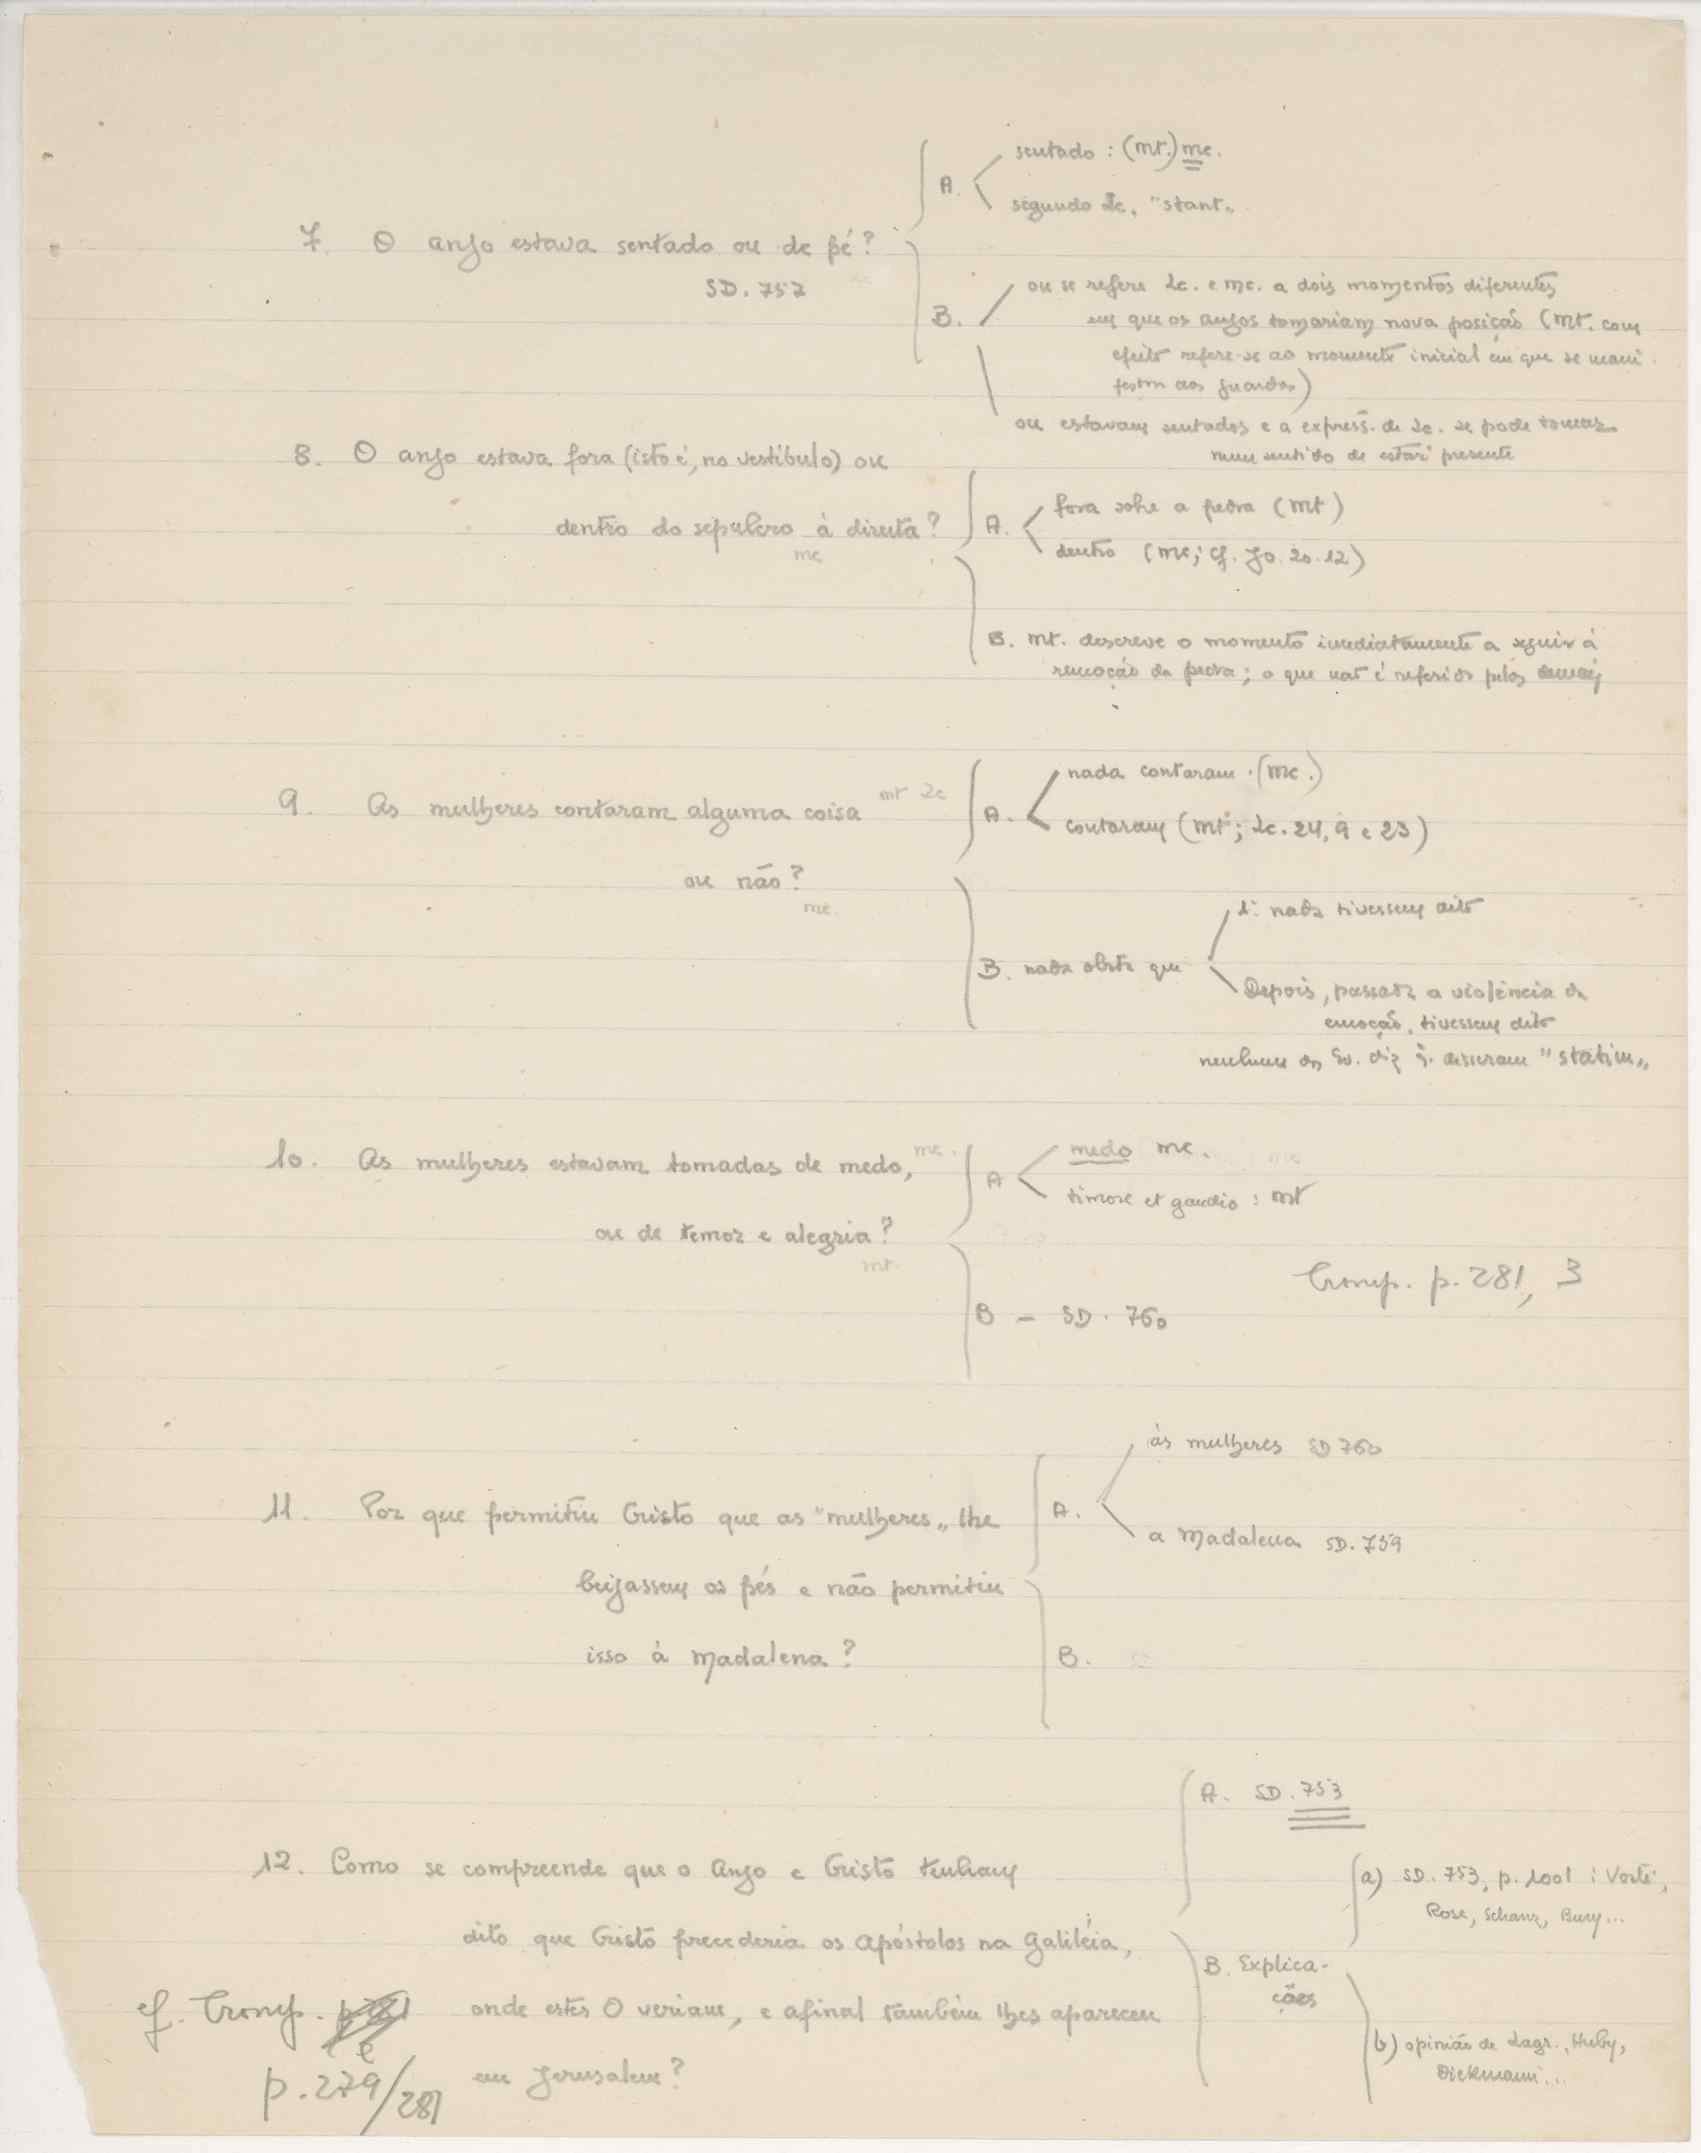 7. O anjo estava sentado ou de pé?
SD. 757
A.
sentado : (Mt.) Mc.
segundo Lc. "stant"
B.
ou se refere Lc. e Mc. a dois momentos diferentes
em que os anjos tomariam nova posição (Mt. com
efeito refere-se ao momento inicial em que se mani
festam aos guardas)
ou estavam sentados e a express. de Lc. se pode tomar
num sentido de estar presente
8. O anjo estava fora (isto é, no vestíbulo) ou
dentro do sepulcro à direita?
Mc
A.
fora sobre a pedra (Mt)
dentro (Mc; cf. Jo. 20.12)
B. Mt. descreve o momento imediatamente a seguir à
remoção da pedra; o que não é referido pelos demais
9. As mulheres contaram alguma coisa
Mt Lc
ou não?
Mc.
A.
nada contaram (Mc.)
contaram (Mt; Lc. 24, 9 e 23)
B. nada obsta que
1º nada tivessem dito
Depois, passada a violência da
emoção, tivessem dito
nenhum dos Ev. diz q. disseram "statim"
10. As mulheres estavam tomadas de medo,
Mc.
ou de temor e alegria?
Mt.
A
medo Mc.
timore et gaudio : Mt
B – SD. 760
Cromp. p. 281, 3
11. Por que permitiu Cristo que as "mulheres" lhe
beijassem os pés e não permitiu
isso à Madalena?
A.
às mulheres SD 760
a Madalena SD. 759
B.
12. Como se compreende que o Anjo e Cristo tenham
dito que Cristo precederia os Apóstolos na Galiléia,
onde estes O veriam, e afinal também lhes apareceu
em Jerusalem?
cf. Cromp.
p. 279/281
A. SD. 753
B. Explica-
ções
a) SD. 753, p. 1001 : Vosté,
Rose, Schanz,
b) opinião de Lagr., Huby,
Dickmann...